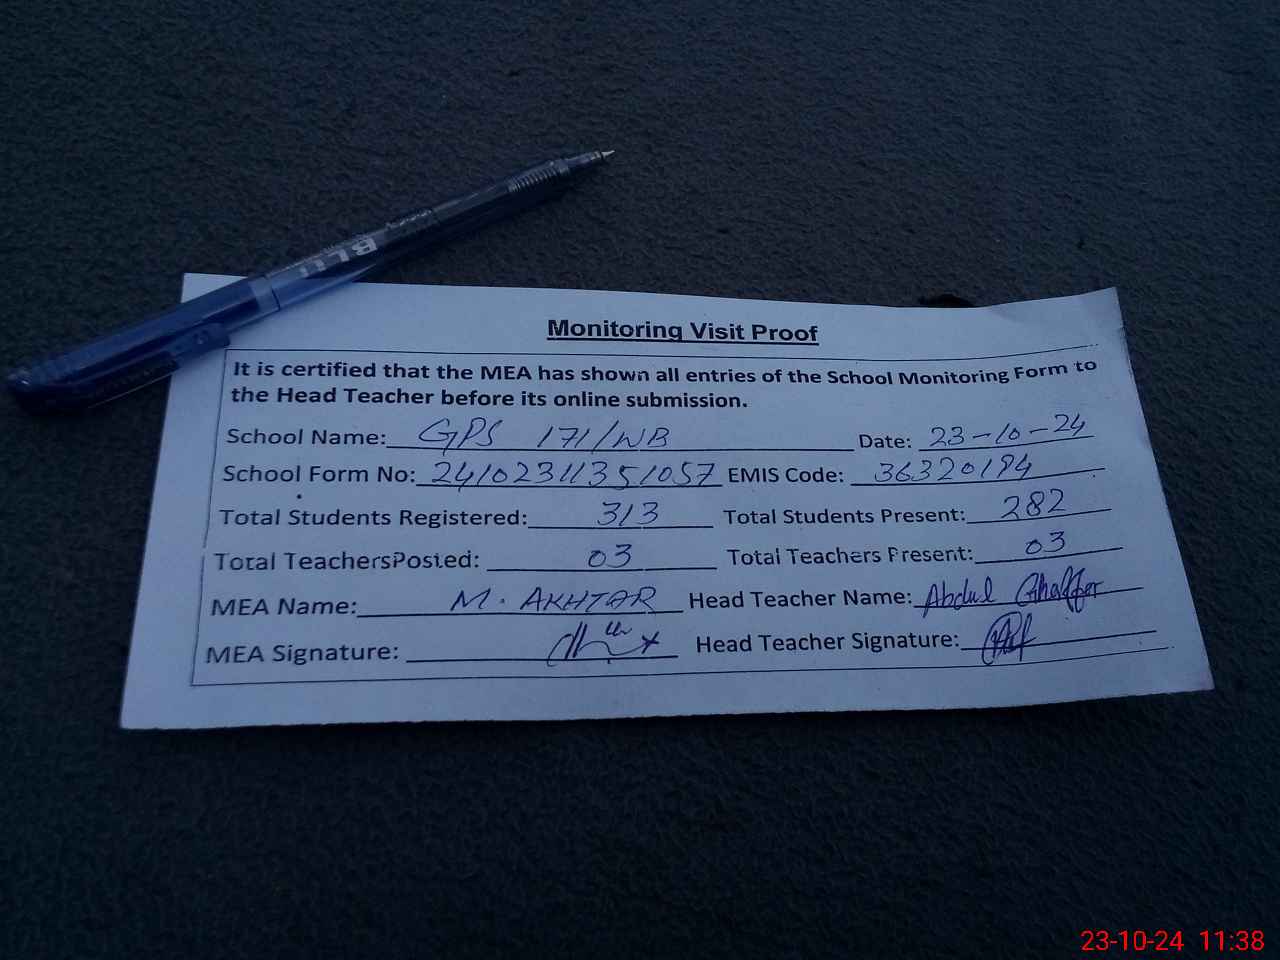 BLU
Monitoring Visit Proof
It is certified that the MEA has shown all entries of the School Monitoring Form to
the Head Teacher before its online submission.
School Name: GPS 171/WB Date: 23-10-24
School Form No: 24102311351057 EMIS Code: 36320194
Total Students Registered: 313 Total Students Present: 282
Total TeachersPosted: 03 Total Teachers Present: 03
MEA Name: M. AKHTAR Head Teacher Name: Abdul Ghaffor
MEA Signature: Head Teacher Signature:
23-10-24 11:38